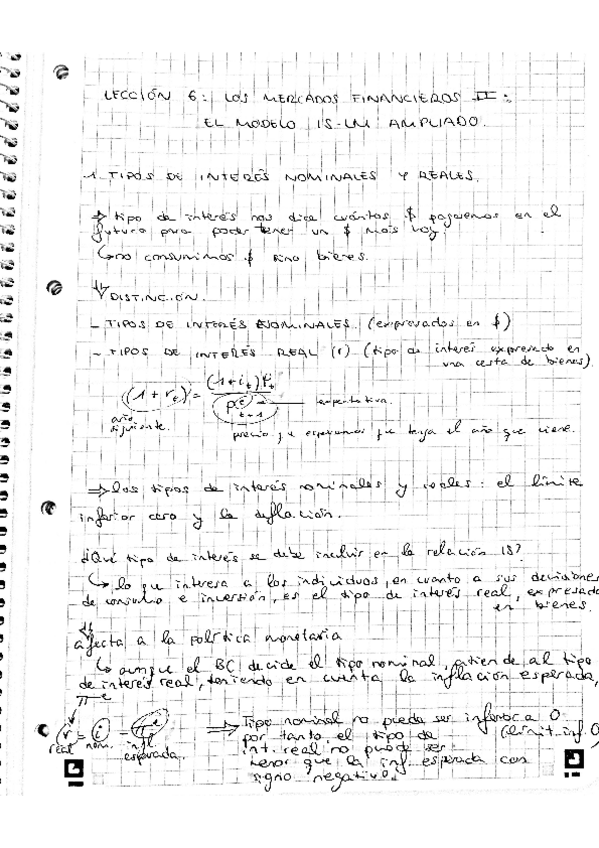 LECCIÓN 6: LOS MERCADOS FINANCIEROS II:
EL MODELO IS-LM AMPLIADO.
1. TIPOS DE INTERÉS NOMINALES Y REALES.
⇒ tipo de interés nos dice cuántos $ pagaremos en el
futuro para poder tener un $ más hoy.
↳ no consumimos $ sino bienes.
⇓ DISTINCIÓN.
- TIPOS DE INTERÉS NOMINALES (expresados en $)
- TIPOS DE INTERÉS REAL (r) (tipo de interés expresado en
una cesta de bienes).
(1+r_t) = (1+i_t)P_t / P^e_{t+1} → expectativa.
año siguiente.
precio que esperamos que tenga el año que viene.
⇒ Los tipos de interés nominales y reales: el límite
inferior cero y la deflación.
¿Qué tipo de interés se debe incluir en la relación IS?
↳ lo que interesa a los individuos, en cuanto a sus decisiones
de consumo e inversión, es el tipo de interés real, expresado
en bienes.
⇓
afecta a la política monetaria
↳ aunque el BC decide el tipo nominal, atiende al tipo
de interés real, teniendo en cuenta la inflación esperada,
π^e
r = i - π^e
real nom. infl. esperada.
⇒ Tipo nominal no puede ser inferior a 0
(límit. inf. 0)
por tanto el tipo de
int. real no puede ser
menor que la inf. esperada con
signo negativo.